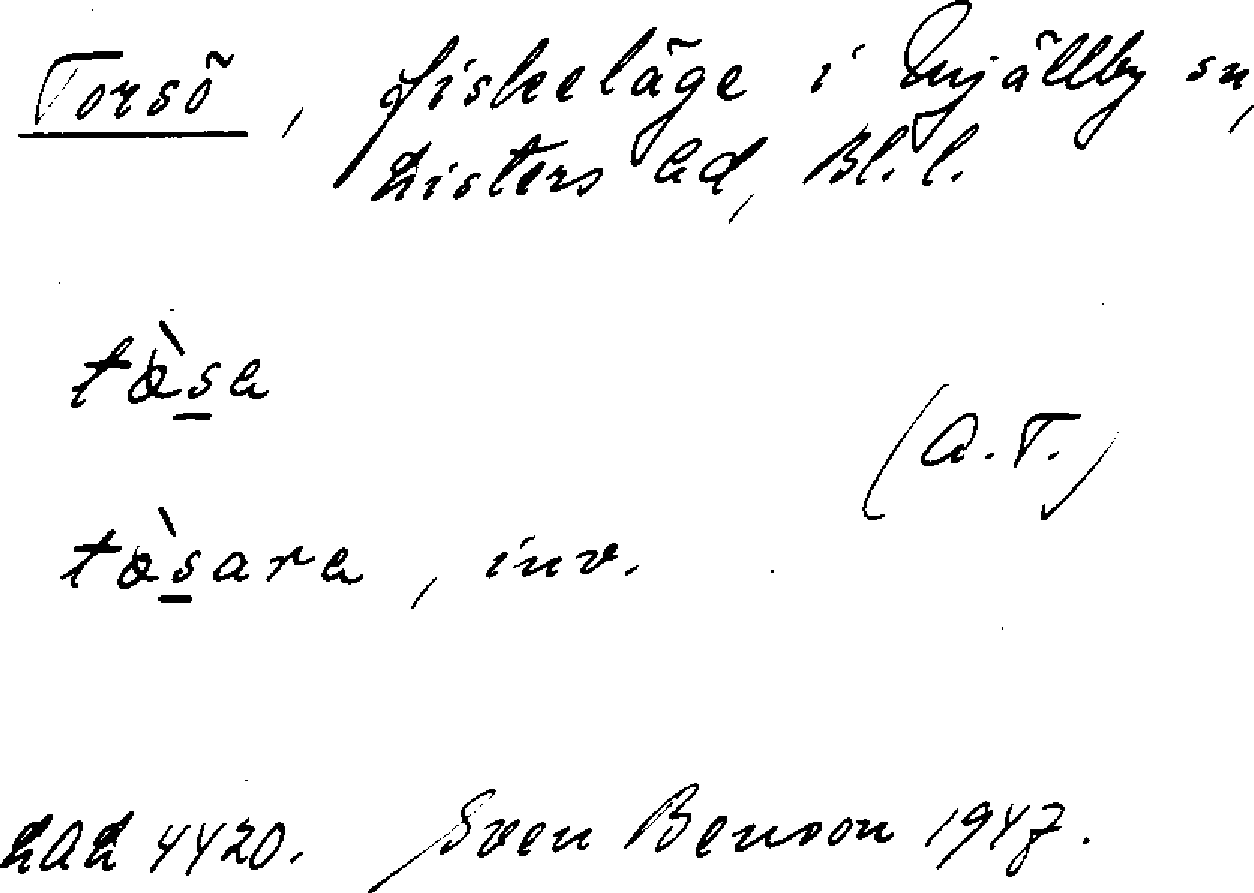 Torsö, fiskeläge i Mjällby sn,
Listers hd, Bl. l.
tàsa
(A.T.)
tàsara, inv.
LAL 4420. Sven Benson 1947.